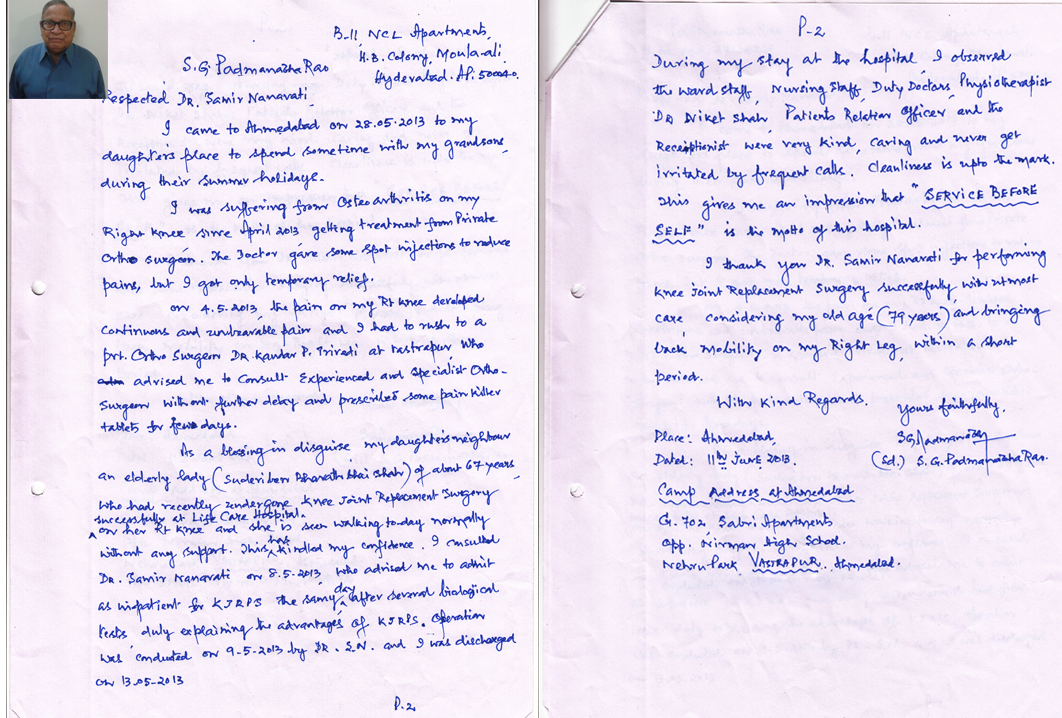 B-11 NCL Apartments,
H.B. Colony, Moula-ali.
Hyderabad. AP. 500040.
S.G Padmanabha Rao
Respected Dr. Samir Nanavati
I came to Ahmedabad on 28.05.2013 to my
daughter's place to spend sometime with my grandsons,
during their summer holidays.
I was suffering from Osteoarthritis on my
Right Knee since April 2013 getting treatment from Private
Ortho surgeon. The Doctor gave some spot injections to reduce
pains, but I got only temporary relief.
on 4.5.2013, the pain on my Rt Knee developed
continuous and unbearable pain and I had to rush to a
prt. Ortho Surgeon DR. P. Trivedi at Vastrapur, who
advised me to Consult Experienced and Specialist Ortho-
Surgeon without further delay and prescribed some pain killer
tablets for few days.
As a blessing in disguise my daughter's neighbour
an elderly lady (Bharath bhai Shah) of about 67 years
who had recently undergone Knee Joint Replacement Surgery
successfully at Life Care Hospital.
on her Rt Knee and she is seen walking to-day normally
without any support. This has kindled my confidence. I consulted
Dr. Samir Nanavati on 8.5-2013 who advised me to admit
as inpatient for KJRPS the samy day after several biological
tests, duly explaining the advantages of KJRPS. Operation
was conducted on 9-5-2013 by DR. S.N. and I was discharged
on 13.05-2013
P.2
P-2
During my stay at the hospital, I observed
the ward staff, Nursing Staff, Duty Doctors, Physiotherapist
Dr Niket Shah, Patients Relation Officer and the
Receptionist were very kind, caring and never get
irritated by frequent calls. Cleanliness is upto the mark.
This gives me an impression that "SERVICE BEFORE
SELF" is the motto of this hospital.
I thank you Dr. Samir Nanavati for performing
Knee Joint Replacement Surgery successfully with utmost
care considering my old age (79 years) and bringing
back mobility on my Right Leg, within a short
period.
With Kind Regards.
Yours faithfully,
SG Padmanabha
Place: Ahmedabad,
Dated: 11th June 2013.
(Sd.) S.G. Padmanabha Rao.
Camp Address at Ahmedabad
G. 702 Sabri Apartments
Opp. Nirman High School.
Nehru Park, VASTRAPUR. Ahmedabad.